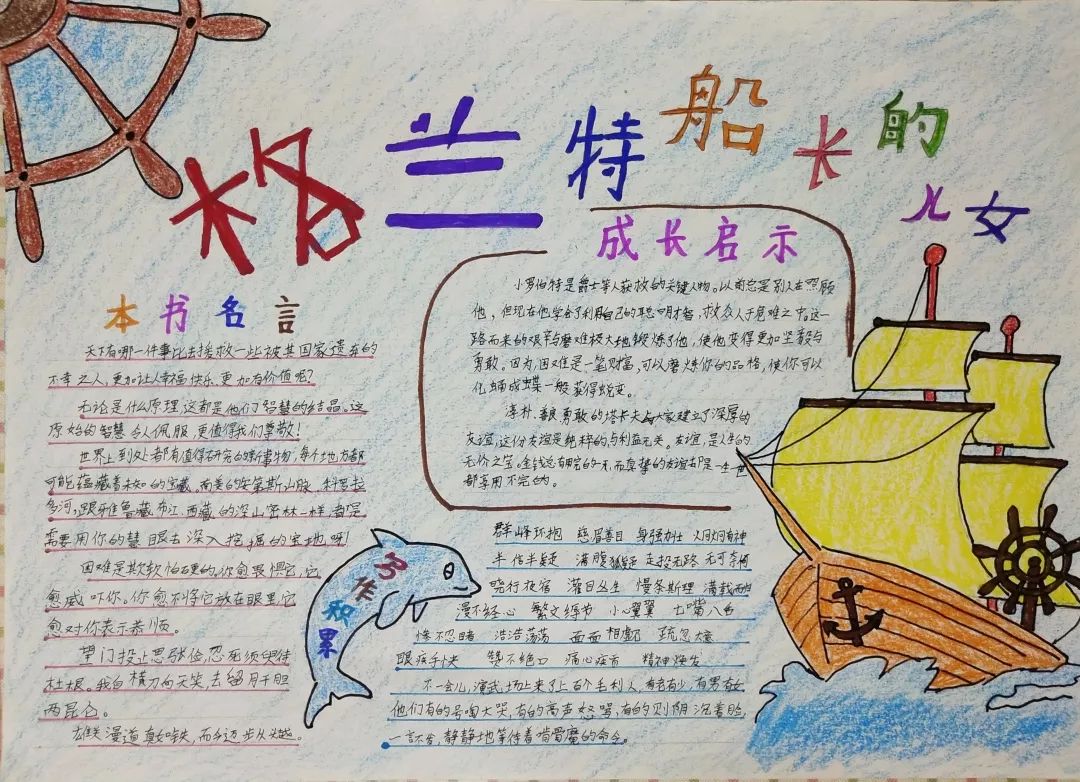 格兰特船长的儿女
成长启示
小罗伯特是爵士等人获救的关键人物。以前总是别人在照顾
他，但现在他学会了利用自己的聪明才智，救众人于危难之中。这一
路而来的艰辛与磨难极大地锻炼了他，使他变得更加坚毅与
勇敢。因为，困难是一笔财富，可以磨炼你的品格，使你可以
化蛹成蝶一般获得蜕变。
淳朴、善良勇敢的塔卡夫与大家建立了深厚的
友谊，这份友谊是纯粹的与利益无关。友谊，是人生的
无价之宝，金钱总有用完的一天，而真挚的友谊却是一生一世
都享用不完的。
本书名言
天下有哪一件事比去挽救一些被其国家遗弃的
不幸之人，更加让人幸福快乐、更加有价值呢？
无论是什么原理，它都是他们智慧的结晶。这
原始的智慧令人佩服，更值得我们尊敬！
世界上到处都有值得研究的事物，每个地方都
可能蕴藏着未知的宝藏，南美的安第斯山脉、科罗拉
多河，跟雅鲁藏布江、西藏的深山密林一样，都是
需要用你的慧眼去深入挖掘的宝地呀！
困难是欺软怕硬的。你愈畏惧它，它
愈威吓你。你愈不将它放在眼里，它
愈对你表示恭顺。
望门投止思张俭，忍死须臾待
杜根。我自横刀向天笑，去留肝胆
两昆仑。
雄关漫道真如铁，而今迈步从头越。
写作积累
群峰环抱 慈眉善目 身强力壮 炯炯有神
半信半疑 满腹狐疑 走投无路 无可奈何
晓行夜宿 灌目丛生 慢条斯理 满载而归
漫不经心 繁文缛节 小心翼翼 七嘴八舌
惨不忍睹 浩浩荡荡 面面相觑 疏忽大意
眼疾手快 赞不绝口 痛心疾首 精神焕发
不一会儿，演武场上来了上百个毛利人，有老有少，有男有女，
他们有的号啕大哭，有的高声怒骂，有的则阴沉着脸，
一言不合，静静地等待着啃骨魔的命令。